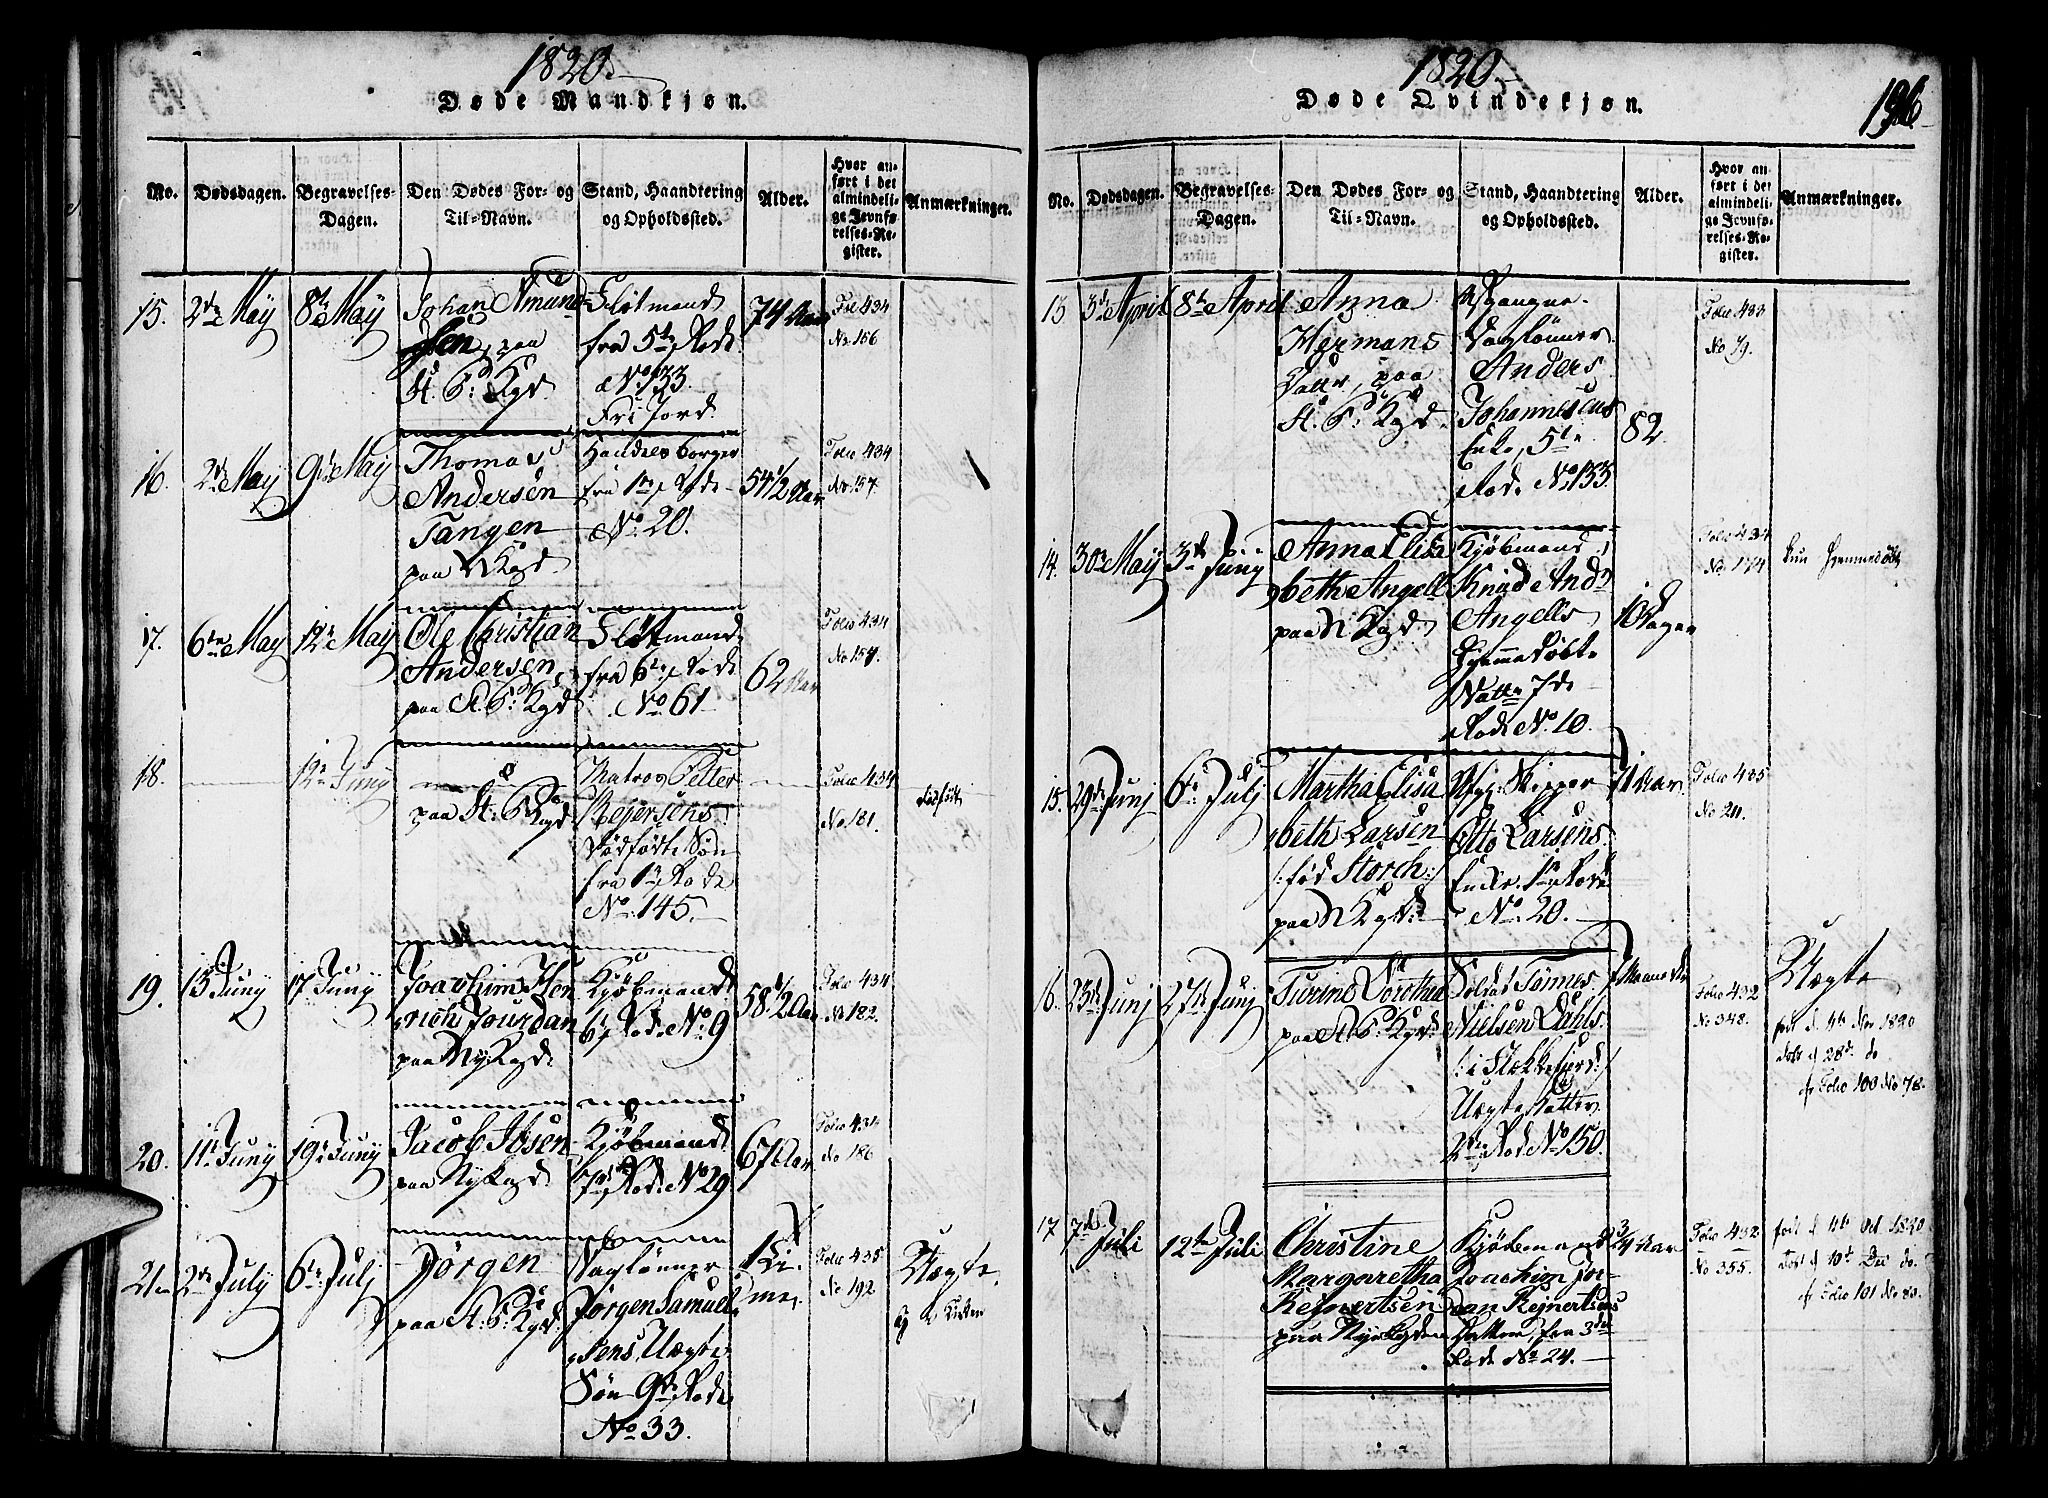 1820.
Døde Mandkjøn.
No.
Dødsdagen.
Begravelses-
Dagen.
Den Dødes For- og
Til-Navn.
Stand, Haandtering
og Opholdssted.
Alder.
Hvor an-
ført i det
almindeli-
ge Jevnfø-
relses-Re-
gister.
Anmærkninger.
15.
2de May
8de May
Johan Amund-
sen, paa
St. P: Kgd
Fløtmand
fra 5te Rode
No 133
Fri Jord
74 Aar
Folio 434
No 156
16.
2de May
9de May
Thomas
Andersen
Tangen
paa N Kgd.
Handels borger
fra 1te Rode
No 20.
54 1/2 Aar
Folio 434
No 157.
17.
6te May
12te May
Ole Christian
Andersen,
paa St. P: Kgd
Fløtmand
fra 6te Rode
No 61
62 Aar
Folio 434
No 154.
18.
12te Juny
paa St: P Kgd.
Matros Petter
Rejersens
Dødfødte Søn
fra 1te Rode
No 145.
Folio 434
No 181.
dødfødt
19.
13 Juny
17 Juny
Joachim Hen-
rich Jourdan
paa Ny Kgd.
Kjøbmand
6te Rode No 9
58 1/2 Aar
Folio 434
No 182.
20.
11te Juny
19te Juny
Jacob Ibsen
paa Ny Kgd.
Kjøbmand
7de Rode No 29
67 Aar
Folio 434
No 186
21
2de July
6te July
Jørgen
paa St: P: Kgd.
Daglønner
Jørgen Samuel-
sens Uægte
Søn 9de Rode
No 33.
1 Ti-
me.
Folio 435
No 192
Uægte
1820.
Døde Qvindekjøn.
196.
No.
Dødsdagen.
Begravelses-
Dagen.
Den Dødes For- og
Til-Navn.
Stand, Haandtering
og Opholdssted.
Alder.
Hvor an-
ført i det
almindeli-
ge Jevnfø-
relses-Re-
gister.
Anmærkninger.
13
3de April
8de April
Anna
Hermans
Datter, paa
St. P: Kgd.
Afgangne
Daglønner
Anders
Johannesens
Enke, 5te
Rode No 133
82
Folio 433
No 79.
14.
30te May
3de Juny
Anna Elisa-
beth Angell
paa N Kgd.
Kjøbmand
Knud And
Angells
Hjemmedøbte
Datter 7de
Rode No 10.
10 Dage
Folio 434
No 174
kun Hjemmedøbt
15.
29de Junj
6te Julj
Martha Elisa-
beth Larsen
/:fød Storch:/
paa N Kgd.
Afg: Skipper
Otto Larsens
Encke. 1te Rode
No. 20.
71 Aar.
Folio 435
No 211.
16.
23de Junj
27de Junj
Turine Dorothea
paa St. P: Kgd.
Soldat Tønnes
Nielsen Dahls
/:i Flekkefjord:/
Uægte Datter
2den Rode No 150.
7 Maaneder
Folio 432
No 348.
Uægte
født d. 4de Nov 1820
døbt d 28de do
cfr Folio 100 No 78.
17
7de Juli
12te Juli
Christine
Margaretha
Rejnertsen
paa Nye Kgden
Kjøbmand
Joachim Jor-
dan Rejnertsens
Datter, fra 3die
Rode No 24.
3/4 Aar
Folio 432
No 355.
født d 4de Oct 1820
døbt d 10de Dec do.
cfr Folio 101 No 80.